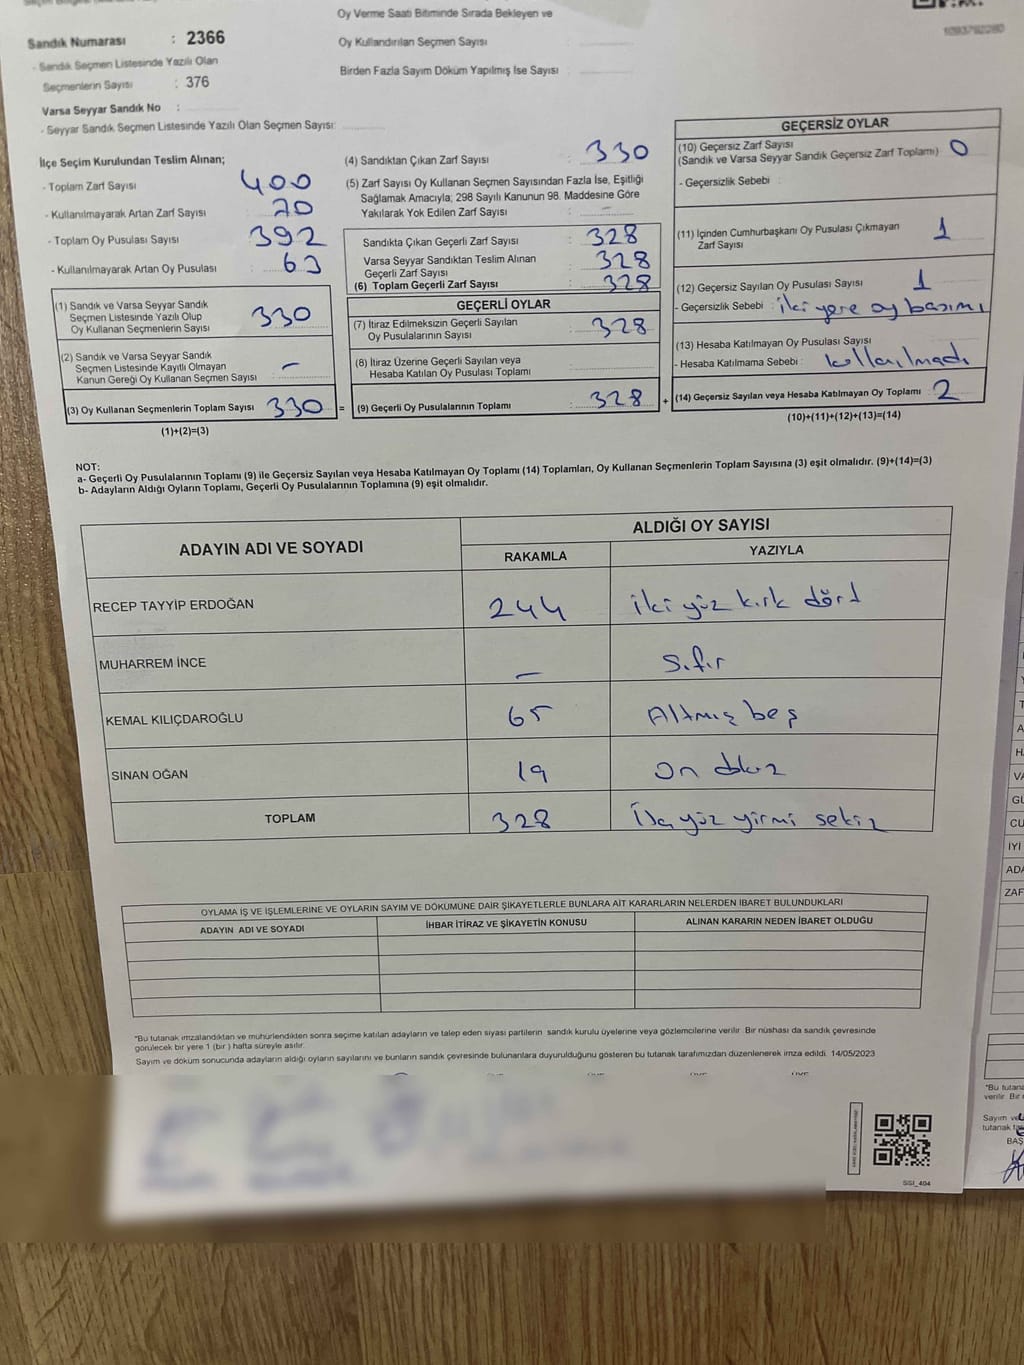 Sandık Numarası : 2366
- Sandık Seçmen Listesinde Yazılı Olan
Seçmenlerin Sayısı : 376
Varsa Seyyar Sandık No :
- Seyyar Sandık Seçmen Listesinde Yazılı Olan Seçmen Sayısı:
Oy Verme Saati Bitiminde Sırada Bekleyen ve
Oy Kullandırılan Seçmen Sayısı :
Birden Fazla Sayım Döküm Yapılmış İse Sayısı :
1093792280
İlçe Seçim Kurulundan Teslim Alınan;
- Toplam Zarf Sayısı : 400
- Kullanılmayarak Artan Zarf Sayısı : 70
- Toplam Oy Pusulası Sayısı : 392
- Kullanılmayarak Artan Oy Pusulası : 63
(1) Sandık ve Varsa Seyyar Sandık
Seçmen Listesinde Yazılı Olup
Oy Kullanan Seçmenlerin Sayısı 330
(2) Sandık ve Varsa Seyyar Sandık
Seçmen Listesinde Kayıtlı Olmayan
Kanun Gereği Oy Kullanan Seçmen Sayısı –
(3) Oy Kullanan Seçmenlerin Toplam Sayısı 330 =
(1)+(2)=(3)
(4) Sandıktan Çıkan Zarf Sayısı : 330
(5) Zarf Sayısı Oy Kullanan Seçmen Sayısından Fazla İse, Eşitliği
Sağlamak Amacıyla; 298 Sayılı Kanunun 98. Maddesine Göre
Yakılarak Yok Edilen Zarf Sayısı : –
Sandıkta Çıkan Geçerli Zarf Sayısı : 328
Varsa Seyyar Sandıktan Teslim Alınan
Geçerli Zarf Sayısı : 328
(6) Toplam Geçerli Zarf Sayısı : 328
GEÇERLİ OYLAR
(7) İtiraz Edilmeksizin Geçerli Sayılan
Oy Pusulalarının Sayısı : 328
(8) İtiraz Üzerine Geçerli Sayılan veya
Hesaba Katılan Oy Pusulası Toplamı :
(9) Geçerli Oy Pusulalarının Toplamı : 328 +
GEÇERSİZ OYLAR
(10) Geçersiz Zarf Sayısı :
(Sandık ve Varsa Seyyar Sandık Geçersiz Zarf Toplamı) 0
- Geçersizlik Sebebi :
(11) İçinden Cumhurbaşkanı Oy Pusulası Çıkmayan
Zarf Sayısı : 1
(12) Geçersiz Sayılan Oy Pusulası Sayısı : 1
- Geçersizlik Sebebi : iki yere oy basımı
(13) Hesaba Katılmayan Oy Pusulası Sayısı :
- Hesaba Katılmama Sebebi : kullanılmadı
(14) Geçersiz Sayılan veya Hesaba Katılmayan Oy Toplamı : 2
(10)+(11)+(12)+(13)=(14)
NOT:
a- Geçerli Oy Pusulalarının Toplamı (9) ile Geçersiz Sayılan veya Hesaba Katılmayan Oy Toplamı (14) Toplamları, Oy Kullanan Seçmenlerin Toplam Sayısına (3) eşit olmalıdır. (9)+(14)=(3)
b- Adayların Aldığı Oyların Toplamı, Geçerli Oy Pusulalarının Toplamına (9) eşit olmalıdır.
ADAYIN ADI VE SOYADI
ALDIĞI OY SAYISI
RAKAMLA YAZIYLA
RECEP TAYYİP ERDOĞAN 244 iki yüz kırk dört
MUHARREM İNCE – Sıfır
KEMAL KILIÇDAROĞLU 65 Altmış beş
SİNAN OĞAN 19 On dokuz
TOPLAM 328 Üç yüz yirmi sekiz
OYLAMA İŞ VE İŞLEMLERİNE VE OYLARIN SAYIM VE DÖKÜMÜNE DAİR ŞİKAYETLERLE BUNLARA AİT KARARLARIN NELERDEN İBARET BULUNDUKLARI
ADAYIN ADI VE SOYADI İHBAR İTİRAZ VE ŞİKAYETİN KONUSU ALINAN KARARIN NEDEN İBARET OLDUĞU
*Bu tutanak imzalandıktan ve mühürlendikten sonra seçime katılan adayların ve talep eden siyasi partilerin sandık kurulu üyelerine veya gözlemcilerine verilir. Bir nüshası da sandık çevresinde
görülecek bir yere 1 (bir ) hafta süreyle asılır.
Sayım ve döküm sonucunda adayların aldığı oyların sayılarını ve bunların sandık çevresinde bulunanlara duyurulduğunu gösteren bu tutanak tarafımızdan düzenlenerek imza edildi. 14/05/2023
SSI_404
GÜ
CU
İYİ
ADA
ZAF
*Bu tutana
verilir. Bir
Sayım ve
tutanak
BAŞ